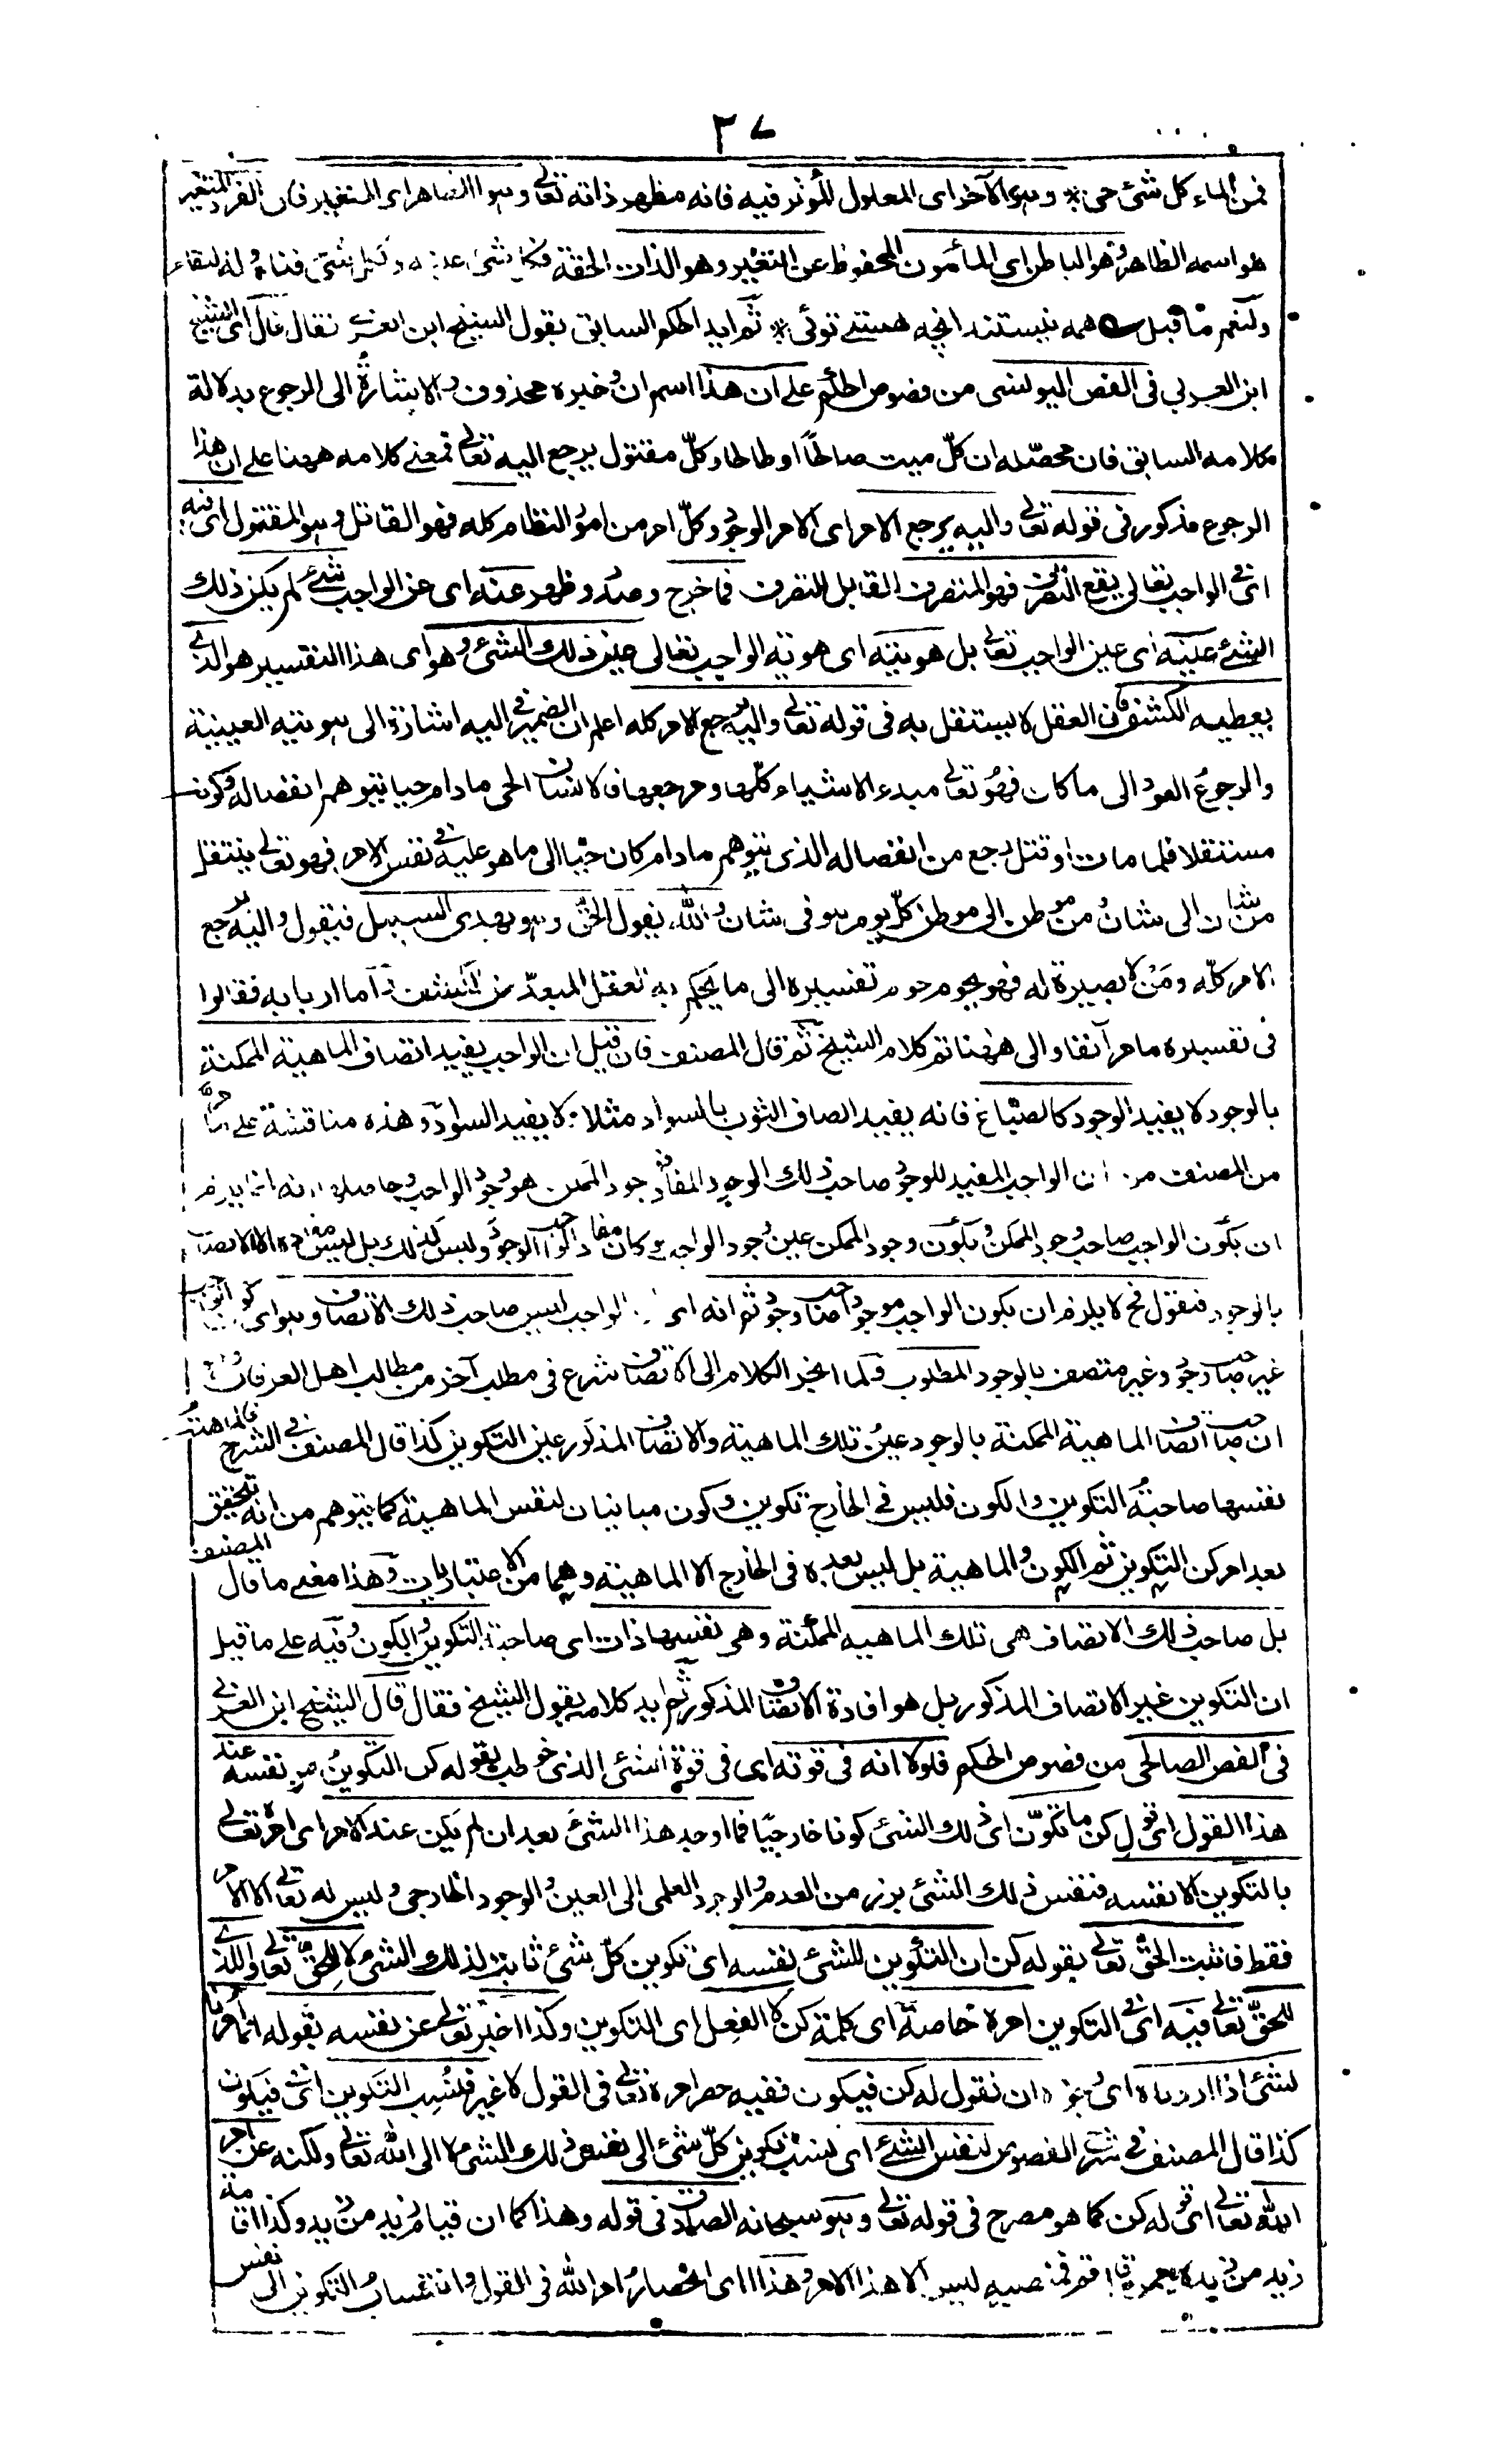 ٣٧
فمن الماء كل شئ حى * وهو الآخر اى المعلول المؤثر فيه فانه مظهر ذاته تعالى وهو الظاهر اى المتغير فان الفرد المتغير
هو اسمه الظاهر وهو الباطن اى المأمون المحفوظ عن التغير وهو الذات الحقة
ولنعم ما قيل همه نيستند انچه هستى توئى * ثم ايد الحكم السابق بقول الشيخ ابن العربى فقال قال اى الشيخ
ابن العربي فى الفص اليونسى من فصوص الحكم على ان هذا اسم ان وخبره محذوف والاشارة الى الرجوع بدلالة
كلامه السابق فان محصله ان كلّ ميت صالحًا او طالحا وكلّ مقتول يرجع اليه تعالى فمعنى كلامه ههنا على ان هذا
الرجوع مذكور فى قوله تعالى واليه يرجع الامر اى الامر الوجودى وكلّ امر من امور النظام كله فهو القاتل وهو المقتول اى فيه
اى فى الواجب تعالى يقع التصرف فهو المتصرف القابل للتصرف فما خرج وصدر وظهر عنه اى عن الواجب شئ لم يكن ذلك
الشئ عينه اى عين الواجب تعالى بل هويته اى هوية الواجب تعالى عين ذلك الشئ وهو اى هذا التفسير هو الذى
يعطيه الكشف فان العقل لا يستقل به فى قوله تعالى واليه يرجع الامر كله اعلم ان الضمير فى اليه اشارة الى هويته العينية
والرجوع العود الى ما كان فهو تعالى مبدء الاشياء كلها ومرجعها فالانسان الحى ما دام حيا يتوهم انفصاله وكونه
مستقلا فلما مات او قتل رجع من انفصاله الذى يتوهم ما دام كان حيّا الى ما هو عليه فى نفس الامر فهو تعالى ينتقل
من شان الى شان ومن موطن الى موطن كلّ يوم هو فى شان والله يقول الحق وهو يهدى السبيل فيقول واليه يرجع
الامر كلّه ومَن لا بصيرة له فهو يحوم حوم تفسيره الى ما يحكم به العقل المبعّد عن الكشف واما اربابه فقالوا
فى تفسيره ما مر آنفا والى ههنا تم كلام الشيخ ثم قال المصنف فان قيل ان الواجب يفيد اتصاف الماهية الممكنة
بالوجود لا يفيد الوجود كالصبّاغ فانه يفيد اتصاف الثوب بالسواد مثلا لا يفيد السواد وهذه مناقشة على ما مرّ
من المصنف من ان الواجب المفيد للوجود صاحب ذلك الوجود المفاد فوجود الممكن هو وجود الواجب وحاصله انه انما يلزم
ان يكون الواجب صاحب وجود الممكن ويكون وجود الممكن عين وجود الواجب لو كان مفاد الواجب الوجود وليس كذلك بل ليس مفاده الا الاتصاف
بالوجود فنقول فح لا يلزم ان يكون الواجب موجودا صاحب وجود ثم انه اى الواجب ليس صاحب ذلك الاتصاف وهو اى كون الواجب
غير صاحب وجود وغير متصف بالوجود المطلوب ولما انجر الكلام الى الاتصاف شرع فى مطلب آخر من مطالب اهل العرفان
ان صاحب اتصاف الماهية الممكنة بالوجود عين تلك الماهية والاتصاف المذكور عين التكوين كذا قال المصنف فى الشرح فالماهية
بنفسها صاحبة التكوين والكون فليس فى الخارج تكوين وكون مباينان لنفس الماهية كما يتوهم من انه يتحقق
بعد امر كن التكوين ثم الكون والماهية بل ليس بعده فى الخارج الا الماهية وهما من الاعتباريات وهذا معنى ما قال المصنف
بل صاحب ذلك الاتصاف هى تلك الماهية الممكنة وهى نفسها ذات اى صاحبة التكوين والكون وفيه على ما قيل
ان التكوين غير الاتصاف المذكور بل هو افادة الاتصاف المذكور ثم ايد كلامه بقول الشيخ فقال قال الشيخ ابن العربى
فى الفص الصالحى من فصوص الحكم فلولا انه فى قوته اى فى قوة الشئ الذى خوطب بقوله كن التكوين من نفسه عند
هذا القول اى قول كن ما تكوّن اى ذلك الشئ كونا خارجيًا فما اوجد هذا الشئ بعد ان لم يكن عند الامر اى امره تعالى
بالتكوين الا نفسه فنفس ذلك الشئ برز من العدم والوجود العلمى الى العين والوجود الخارجى وليس له تعالى الا الامر
فقط فاثبت الحق تعالى بقوله كن ان التكوين للشئ نفسه اى تكوين كلّ شئ ثابت لذلك الشئ لا للحق تعالى والذى
للحقّ تعالى فيه اى فى التكوين امره خاصة اى كلمة كن لا الفعل اى التكوين وكذا اخبر تعالى عن نفسه بقوله انما امرنا
لشئ اذا اردناه ان نقول له كن فيكون ففيه حصر امره تعالى فى القول لا غير فنُسِب التكوين اى فيكون
كذا قال المصنف فى شرح الفصوص لنفس الشئ اى نسب تكوين كلّ شئ الى نفس ذلك الشئ لا الى الله تعالى ولكنه عن امر
الله تعالى اى قوله كن كما هو مصرح فى قوله تعالى وهو سبحانه الصادق فى قوله وهذا كما ان قيام زيد من زيد وكذا اقامة
زيد من زيد ليس الا هذا الامر وهذا اى انحصار امر الله فى القول وانتساب التكوين الى نفس